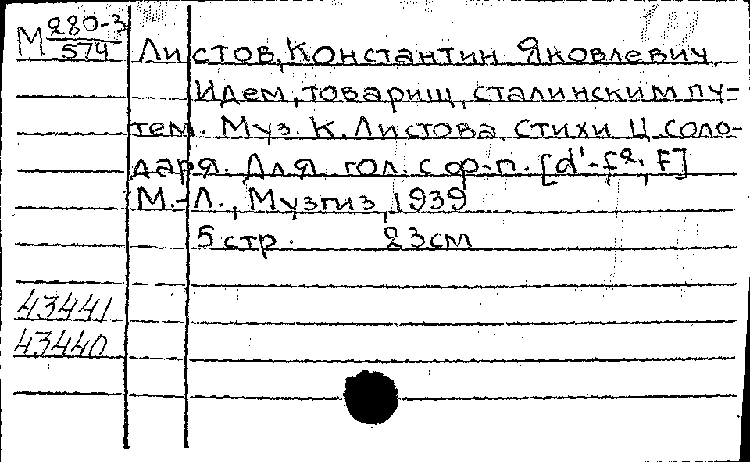 М 280-3
574
Листов, Константин Яковлевич.
Идем, товарищ, сталинским пу-
тем. Муз. К. Листова, стихи Ц. Соло-
даря. Для гол. с ф-п. [d¹-f², F]
М.-Л., Музгиз, 1939
5 стр. 23см
43441
43440